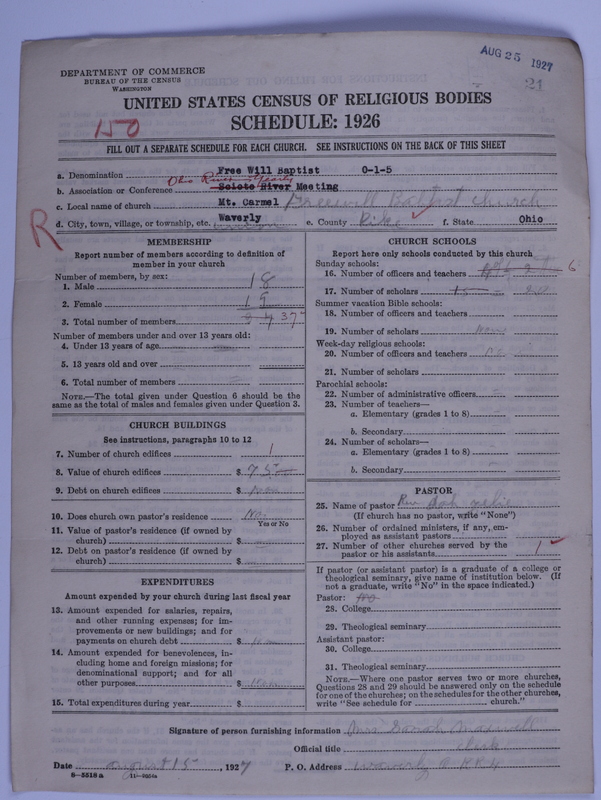 AUG 25 1927
21
DEPARTMENT OF COMMERCE
BUREAU OF THE CENSUS
WASHINGTON
UNITED STATES CENSUS OF RELIGIOUS BODIES
150
SCHEDULE: 1926
FILL OUT A SEPARATE SCHEDULE FOR EACH CHURCH. SEE INSTRUCTIONS ON THE BACK OF THIS SHEET
a. Denomination Free Will Baptist 0-1-5
Ohio River Yearly
b. Association or Conference Scioto River Meeting
c. Local name of church Mt. Carmel Freewill Baptist Church
R
d. City, town, village, or township, etc. Waverly e. County Pike f. State Ohio
MEMBERSHIP
Report number of members according to definition of
member in your church
Number of members, by sex:
1. Male 18
2. Female 19
3. Total number of members 37
Number of members under and over 13 years old:
4. Under 13 years of age
5. 13 years old and over
6. Total number of members
NOTE.—The total given under Question 6 should be the
same as the total of males and females given under Question 3.
CHURCH BUILDINGS
See instructions, paragraphs 10 to 12
7. Number of church edifices 1
8. Value of church edifices $
9. Debt on church edifices $ none
10. Does church own pastor's residence No
Yes or No
11. Value of pastor's residence (if owned by
church) $
12. Debt on pastor's residence (if owned by
church) $
EXPENDITURES
Amount expended by your church during last fiscal year
13. Amount expended for salaries, repairs,
and other running expenses; for im-
provements or new buildings; and for
payments on church debt $
14. Amount expended for benevolences, in-
cluding home and foreign missions; for
denominational support; and for all
other purposes $
15. Total expenditures during year $
CHURCH SCHOOLS
Report here only schools conducted by this church
Sunday schools:
16. Number of officers and teachers 6
17. Number of scholars
Summer vacation Bible schools:
18. Number of officers and teachers
19. Number of scholars None
Week-day religious schools:
20. Number of officers and teachers
21. Number of scholars
Parochial schools:
22. Number of administrative officers
23. Number of teachers—
a. Elementary (grades 1 to 8)
b. Secondary
24. Number of scholars—
a. Elementary (grades 1 to 8)
b. Secondary
PASTOR
25. Name of pastor Rev
(If church has no pastor, write "None")
26. Number of ordained ministers, if any, em-
ployed as assistant pastors
27. Number of other churches served by the
pastor or his assistants 1
If pastor (or assistant pastor) is a graduate of a college or
theological seminary, give name of institution below. (If
not a graduate, write "No" in the space indicated.)
Pastor: No
28. College
29. Theological seminary
Assistant pastor:
30. College
31. Theological seminary
NOTE.—Where one pastor serves two or more churches,
Questions 28 and 29 should be answered only on the schedule
for one of the churches; on the schedules for the other churches,
write "See schedule for church."
Signature of person furnishing information Mrs Sarah Maxwell
Official title Clerk
Date August 15, 1927 P. O. Address Waverly O RR 4
8—5518 a